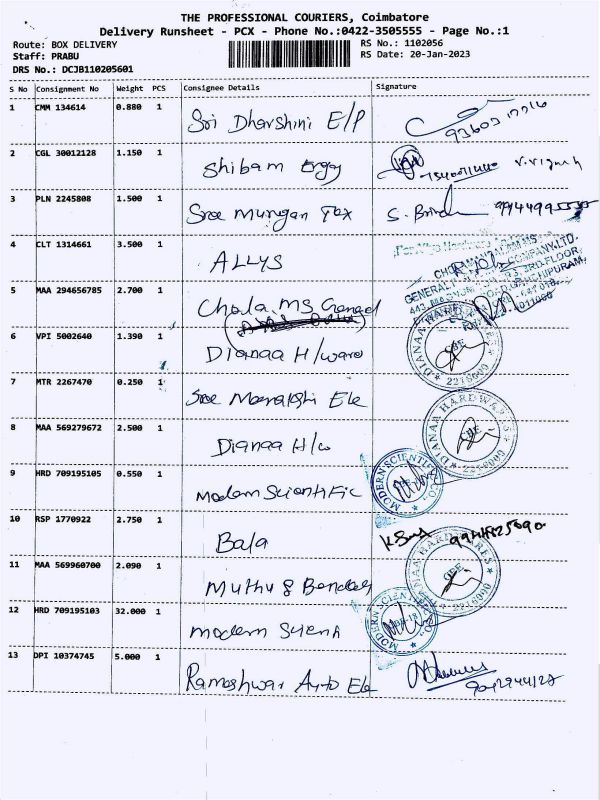 THE PROFESSIONAL COURIERS, Coimbatore
Delivery Runsheet - PCX - Phone No.:0422-3505555 - Page No.:1
Route: BOX DELIVERY RS No.: 1102056
Staff: PRABU RS Date: 20-Jan-2023
DRS No.: DCJB110205601
S No Consignment No Weight PCS Consignee Details Signature
1 CMM 134614 0.880 1 Sri Dharshini E/P
2 CGL 30012128 1.150 1 Shibam V. Vignesh
3 PLN 2245808 1.500 1 Sree Murugan Tex S. 9944995555
4 CLT 1314661 3.500 1 ALLYS
5 MAA 294656785 2.700 1 Chola MS
6 VPI 5002640 1.390 1 Dianaa H/ware
DIANAA HARDWARES 2216000
7 MTR 2267470 0.250 1 Sree Meenakshi Ele
8 MAA 569279672 2.500 1 Dianaa H/w
DIANAA HARDWARES 2216000
9 HRD 709195105 0.550 1 Modern Scientific
MODERN SCIENTIFIC CO.
10 RSP 1770922 2.750 1 Bala
11 MAA 569960700 2.090 1 Muthu &
12 HRD 709195103 32.000 1 Modern Scienti
13 DPI 10374745 5.000 1 Rameshwar Auto Ele